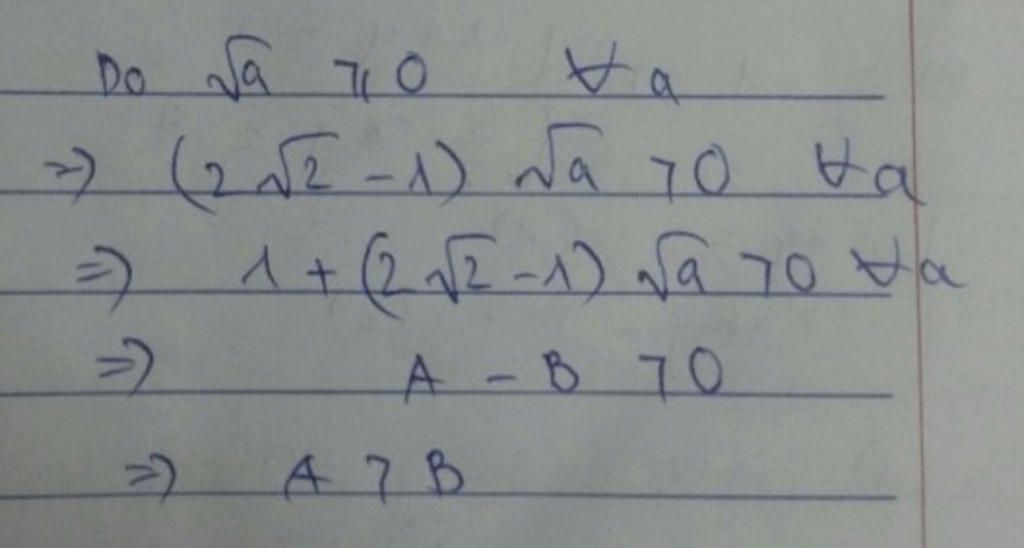 Do √a ⩾ 0 ∀a
=> (2√2 - 1) √a > 0 ∀a
=> 1 + (2√2 - 1) √a > 0 ∀a
=> A - B > 0
=> A > B